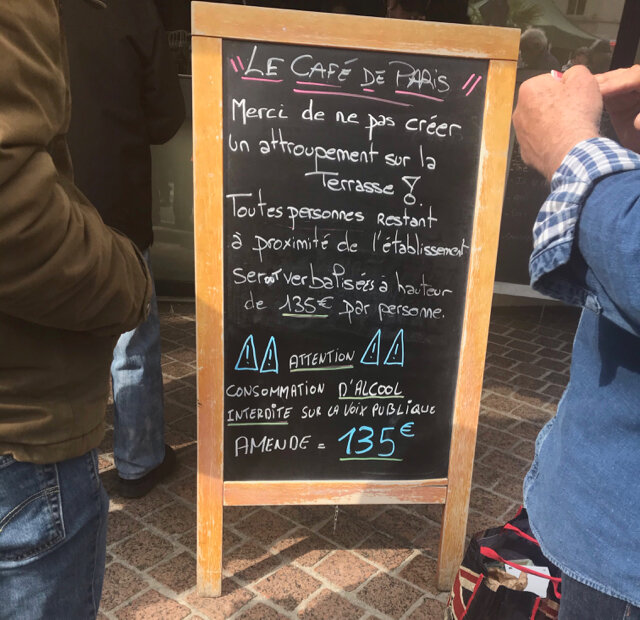 "LE CAFÉ DE PARIS"
Merci de ne pas créer
un attroupement sur la
Terrasse !
Toutes personnes Restant
à proximité de l'établissement
seront verbalisées à hauteur
de 135€ par personne.
! ! ATTENTION ! !
CONSOMMATION D'ALCOOL
INTERDITE SUR LA VOIX PUBLIQUE
AMENDE = 135€